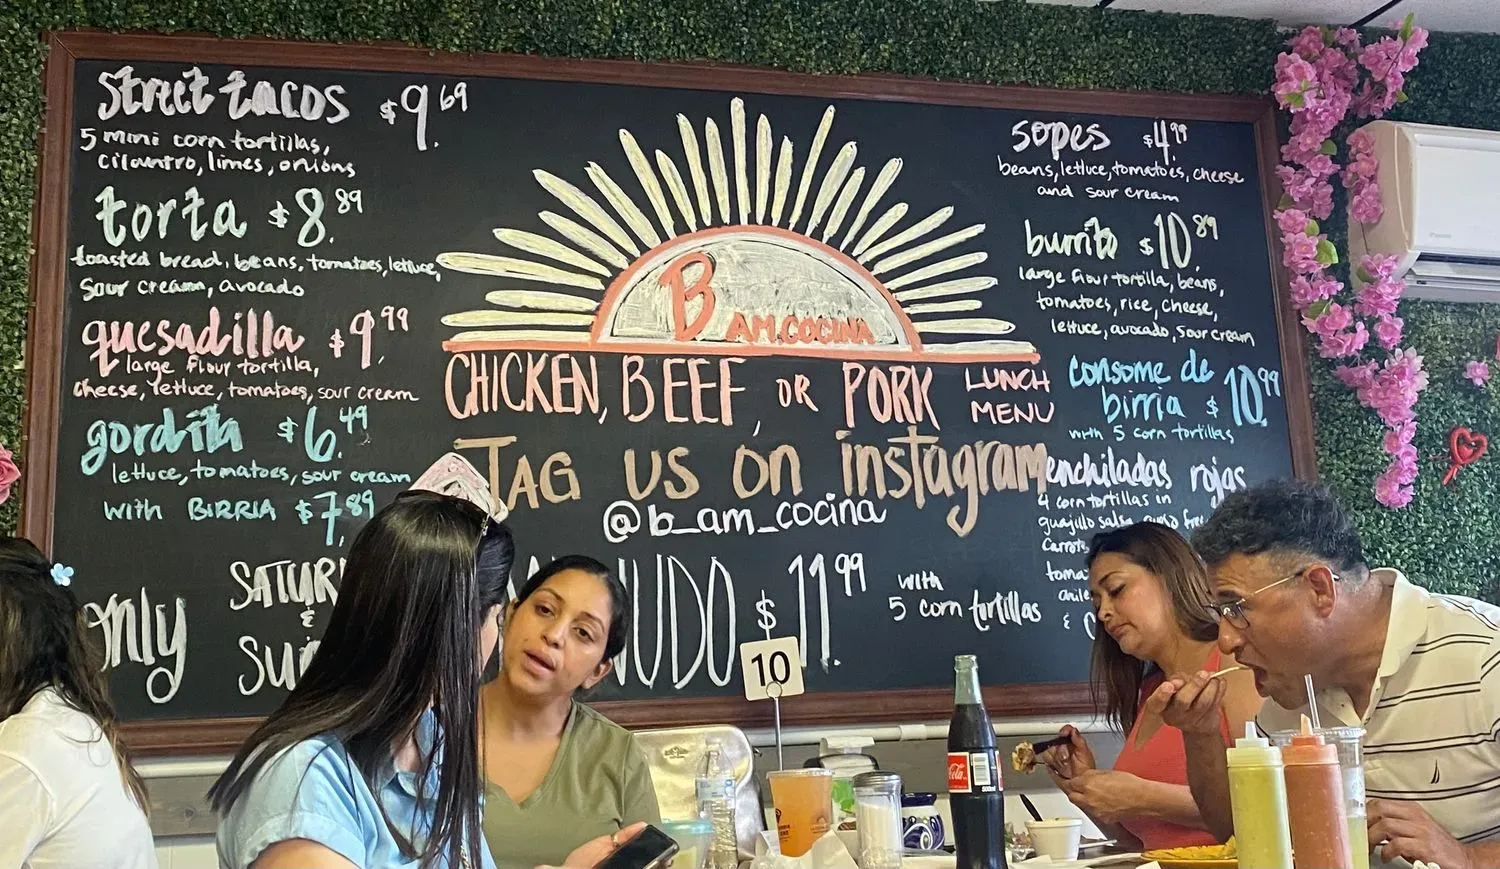 street tacos $9.69
5 mini corn tortillas,
cilantro, limes, onions
torta $8.89
toasted bread, beans, tomatoes, lettuce,
sour cream, avocado
quesadilla $9.99
large flour tortilla,
cheese, lettuce, tomatoes, sour cream
gordita $6.49
lettuce, tomatoes, sour cream
with BIRRIA $7.89
only
SATUR
&
SU
B
AM.COCINA
CHICKEN, BEEF, OR PORK
LUNCH
MENU
TAG US ON instagram
@b_am_cocina
NUDO $11.99
with
5 corn tortillas
sopes $4.99
beans, lettuce, tomatoes, cheese
and sour cream
burrito $10.89
large flour tortilla, beans,
tomatoes, rice, cheese,
lettuce, avocado, sour cream
consome de
birria $10.99
with 5 corn tortillas
enchiladas rojas
4 corn tortillas in
guajillo salsa
carrots
toma
chile
&
10
Coca-Cola
500ml